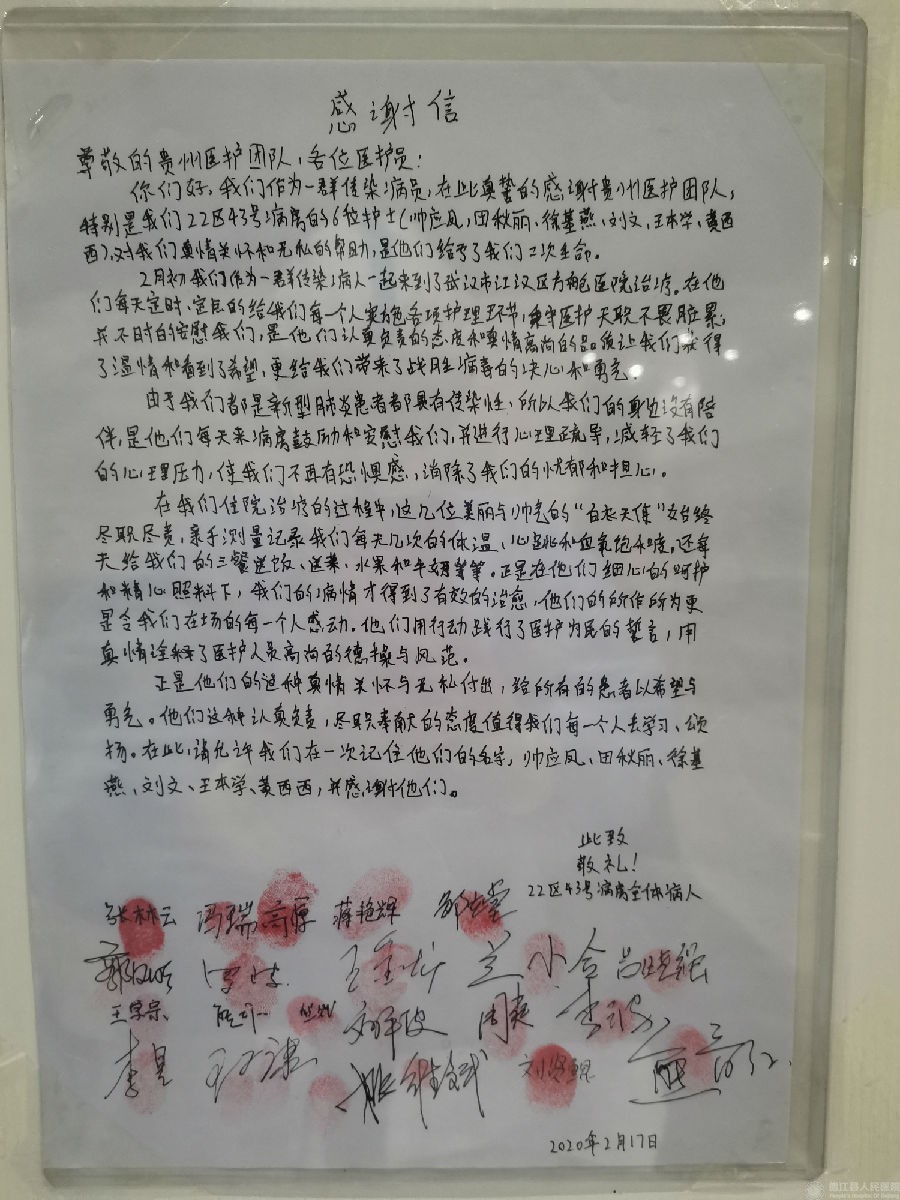 感谢信
尊敬的贵州医护团队，各位医护员：
你们好，我们作为一群传染病员，在此真挚的感谢贵州医护团队，
特别是我们22区43号病房的6位护士（帅应凤，田秋丽，徐基燕，刘文，王本学，黄西
西），对我们真情关怀和无私的帮助，是他们给予了我们二次生命。
2月初我们作为一群传染病人一起来到了武汉市江汉区方舱医院治疗。在他
们每天定时、定点的给我们每一个人实施各项护理环节，秉守医护天职不畏脏累，
并不时的安慰我们，是他们认真负责的态度和真情高尚的品质让我们获得
了温情和看到了希望，更给我们带来了战胜病毒的决心和勇气。
由于我们都是新型肺炎患者都具有传染性、所以我们的身边没有陪
伴，是他们每天来病房鼓励和安慰我们，并进行心理疏导，减轻了我们
的心理压力，使我们不再有恐惧感，消除了我们的忧郁和担心。
在我们住院治疗的过程中，这几位美丽与帅气的“白衣天使”始终
尽职尽责，亲手测量记录我们每天几次的体温、心跳和血氧饱和度。还每
天给我们的三餐送饭、送菜、水果和牛奶等等。正是在他们细心的呵护
和精心照料下，我们的病情才得到了有效的治愈，他们的所作所为更
是令我们在场的每一个人感动。他们用行动践行了医护为民的誓言，用
真情诠释了医护人员高尚的德操与风范。
正是他们的这种真情关怀与无私付出，给所有的患者以希望与
勇气。他们这种认真负责，尽职奉献的态度值得我们每一个人去学习、颂
扬。在此，请允许我们在一次记住他们的名字，帅应凤、田秋丽、徐基
燕、刘文、王本学、黄西西，并感谢他们。
此致
敬礼！
22区43号病房全体病人
张林云 冯瑞 高厚 蒋艳辉
兰小合 吕建强
王家宗 周爽 李波
李昊 刘贤鲲
2020年2月17日
县人民医院